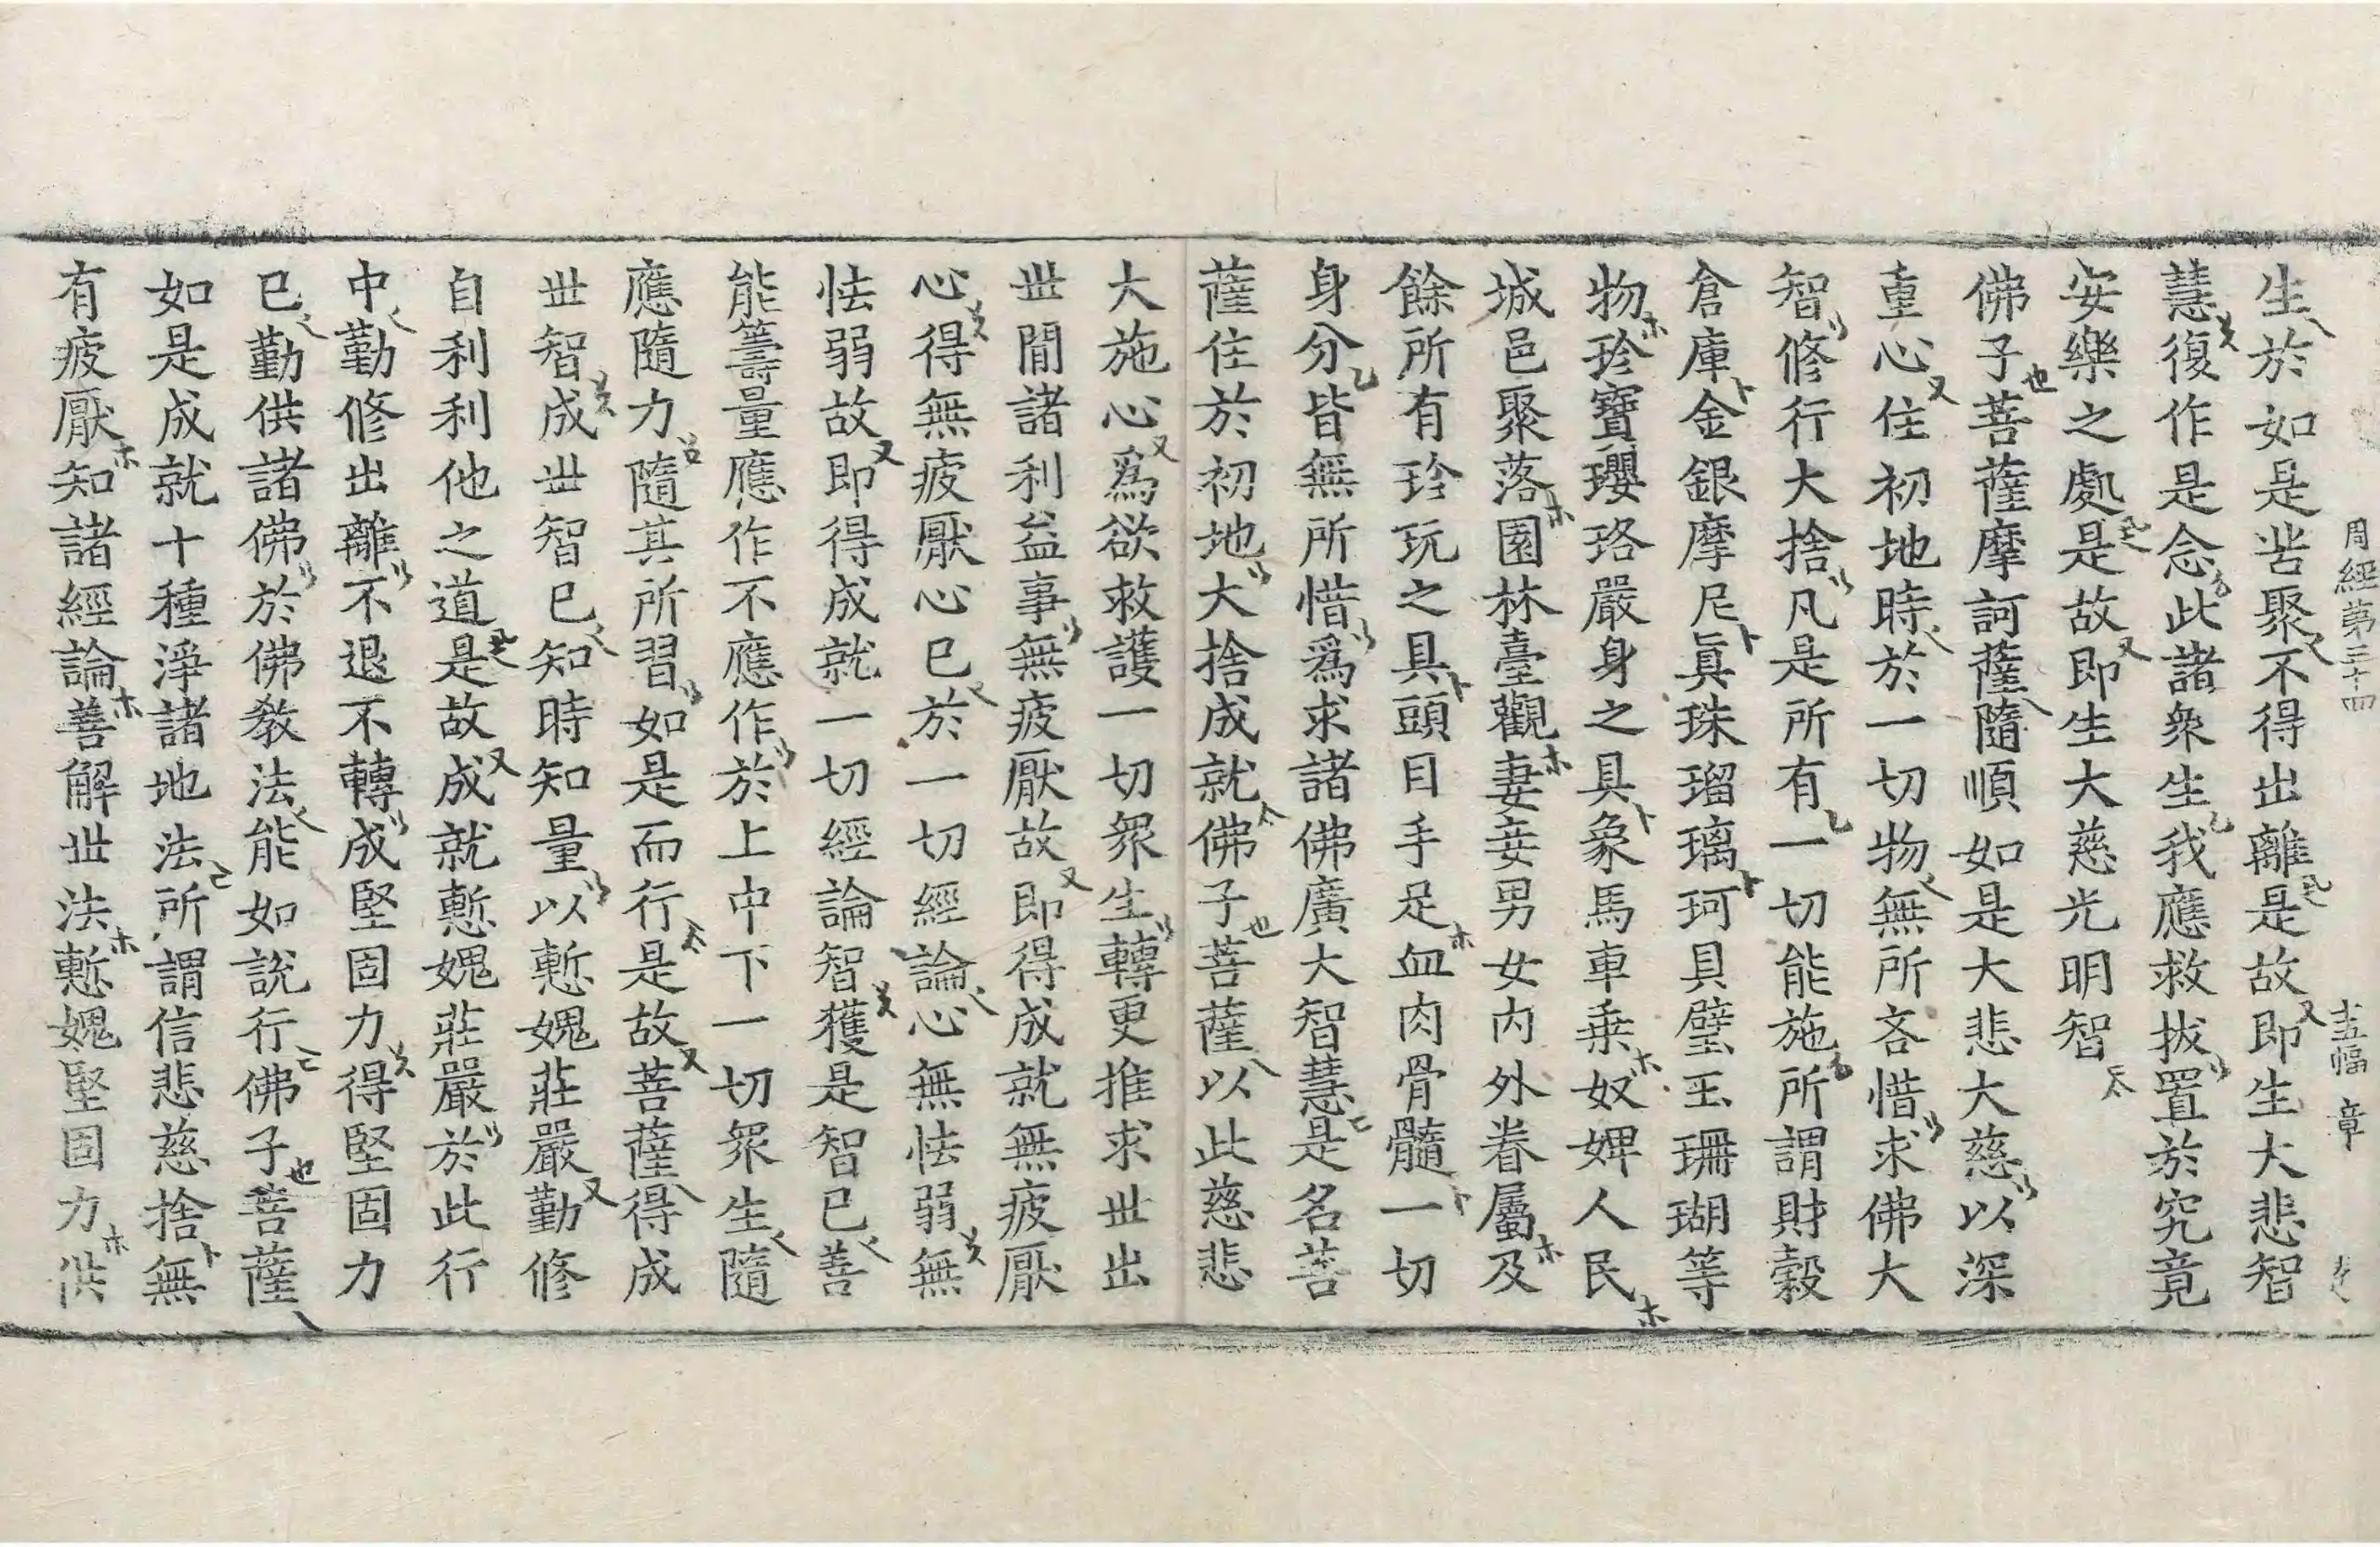 周經第三十四 十五幅 章
生於如是苦聚不得出離是故即生大悲智
慧復作是念此諸衆生我應救拔置於究竟
安樂之處是故即生大慈光明智
佛子菩薩摩訶薩隨順如是大悲大慈以深
重心住初地時於一切物無所吝惜求佛大
智修行大捨凡是所有一切能施所謂財穀
倉庫金銀摩尼真珠瑠璃珂貝璧玉珊瑚等
物珍寶瓔珞嚴身之具象馬車乗奴婢人民
城邑聚落園林臺觀妻妾男女内外眷屬及
餘所有珍玩之具頭目手足血肉骨髓一切
身分皆無所惜爲求諸佛廣大智慧是名菩
薩住於初地大捨成就佛子菩薩以此慈悲
大施心爲欲救護一切衆生轉更推求丗出
丗閒諸利益事無疲厭故即得成就無疲厭
心得無疲厭心已於一切經論心無怯弱無
怯弱故即得成就一切經論智獲是智已善
能籌量應作不應作於上中下一切衆生隨
應隨力隨其所習如是而行是故菩薩得成
丗智成丗智已知時知量以慙媿莊嚴勤修
自利利他之道是故成就慙媿莊嚴於此行
中勤修出離不退不轉成堅固力得堅固力
已勤供諸佛於佛教法能如說行佛子菩薩
如是成就十種淨諸地法所謂信悲慈捨無
有疲厭知諸經論善解丗法慙媿堅固力供